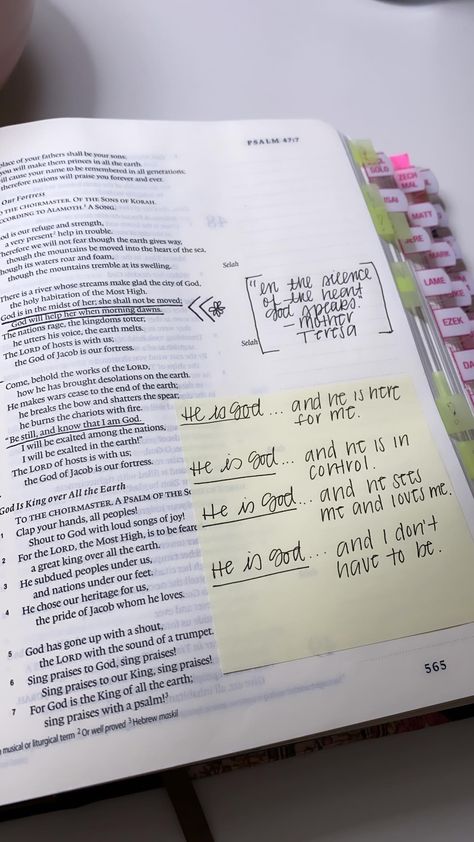 PSALM 47:7
place of your fathers shall be your sons;
you will make them princes in all the earth.
will cause your name to be remembered in all generations;
therefore nations will praise you forever and ever.
Our Fortress
TO THE CHOIRMASTER. OF THE SONS OF KORAH.
ACCORDING TO ALAMOTH.¹ A SONG.
God is our refuge and strength,
a very present² help in trouble.
Therefore we will not fear though the earth gives way,
though the mountains be moved into the heart of the sea,
though its waters roar and foam,
though the mountains tremble at its swelling.
Selah
There is a river whose streams make glad the city of God,
the holy habitation of the Most High.
God is in the midst of her; she shall not be moved;
God will help her when morning dawns.
The nations rage, the kingdoms totter;
he utters his voice, the earth melts.
The LORD of hosts is with us;
the God of Jacob is our fortress.
Selah
"in the silence
of the heart
God speaks."
- mother
Teresa
Come, behold the works of the LORD,
how he has brought desolations on the earth.
He makes wars cease to the end of the earth;
he breaks the bow and shatters the spear;
he burns the chariots with fire.
"Be still, and know that I am God.
I will be exalted among the nations,
I will be exalted in the earth!"
The LORD of hosts is with us;
the God of Jacob is our fortress.
God Is King over All the Earth
TO THE CHOIRMASTER. A PSALM OF THE SO
1 Clap your hands, all peoples!
Shout to God with loud songs of joy!
2 For the LORD, the Most High, is to be feare
a great king over all the earth.
3 He subdued peoples under us,
and nations under our feet.
4 He chose our heritage for us,
the pride of Jacob whom he loves.
5 God has gone up with a shout,
the LORD with the sound of a trumpet.
6 Sing praises to God, sing praises!
Sing praises to our King, sing praises!
7 For God is the King of all the earth;
sing praises with a psalm!³
musical or liturgical term ² Or well proved ³ Hebrew maskil
He is God... and he is here
for me.
He is God... and he is in
control.
He is God... and he sees
me and loves me.
He is God... and I don't
have to be.
565
SOLO
ISAI
JERE
LAME
EZEK
ZECH
MAL
MATT
MARK
LUKE